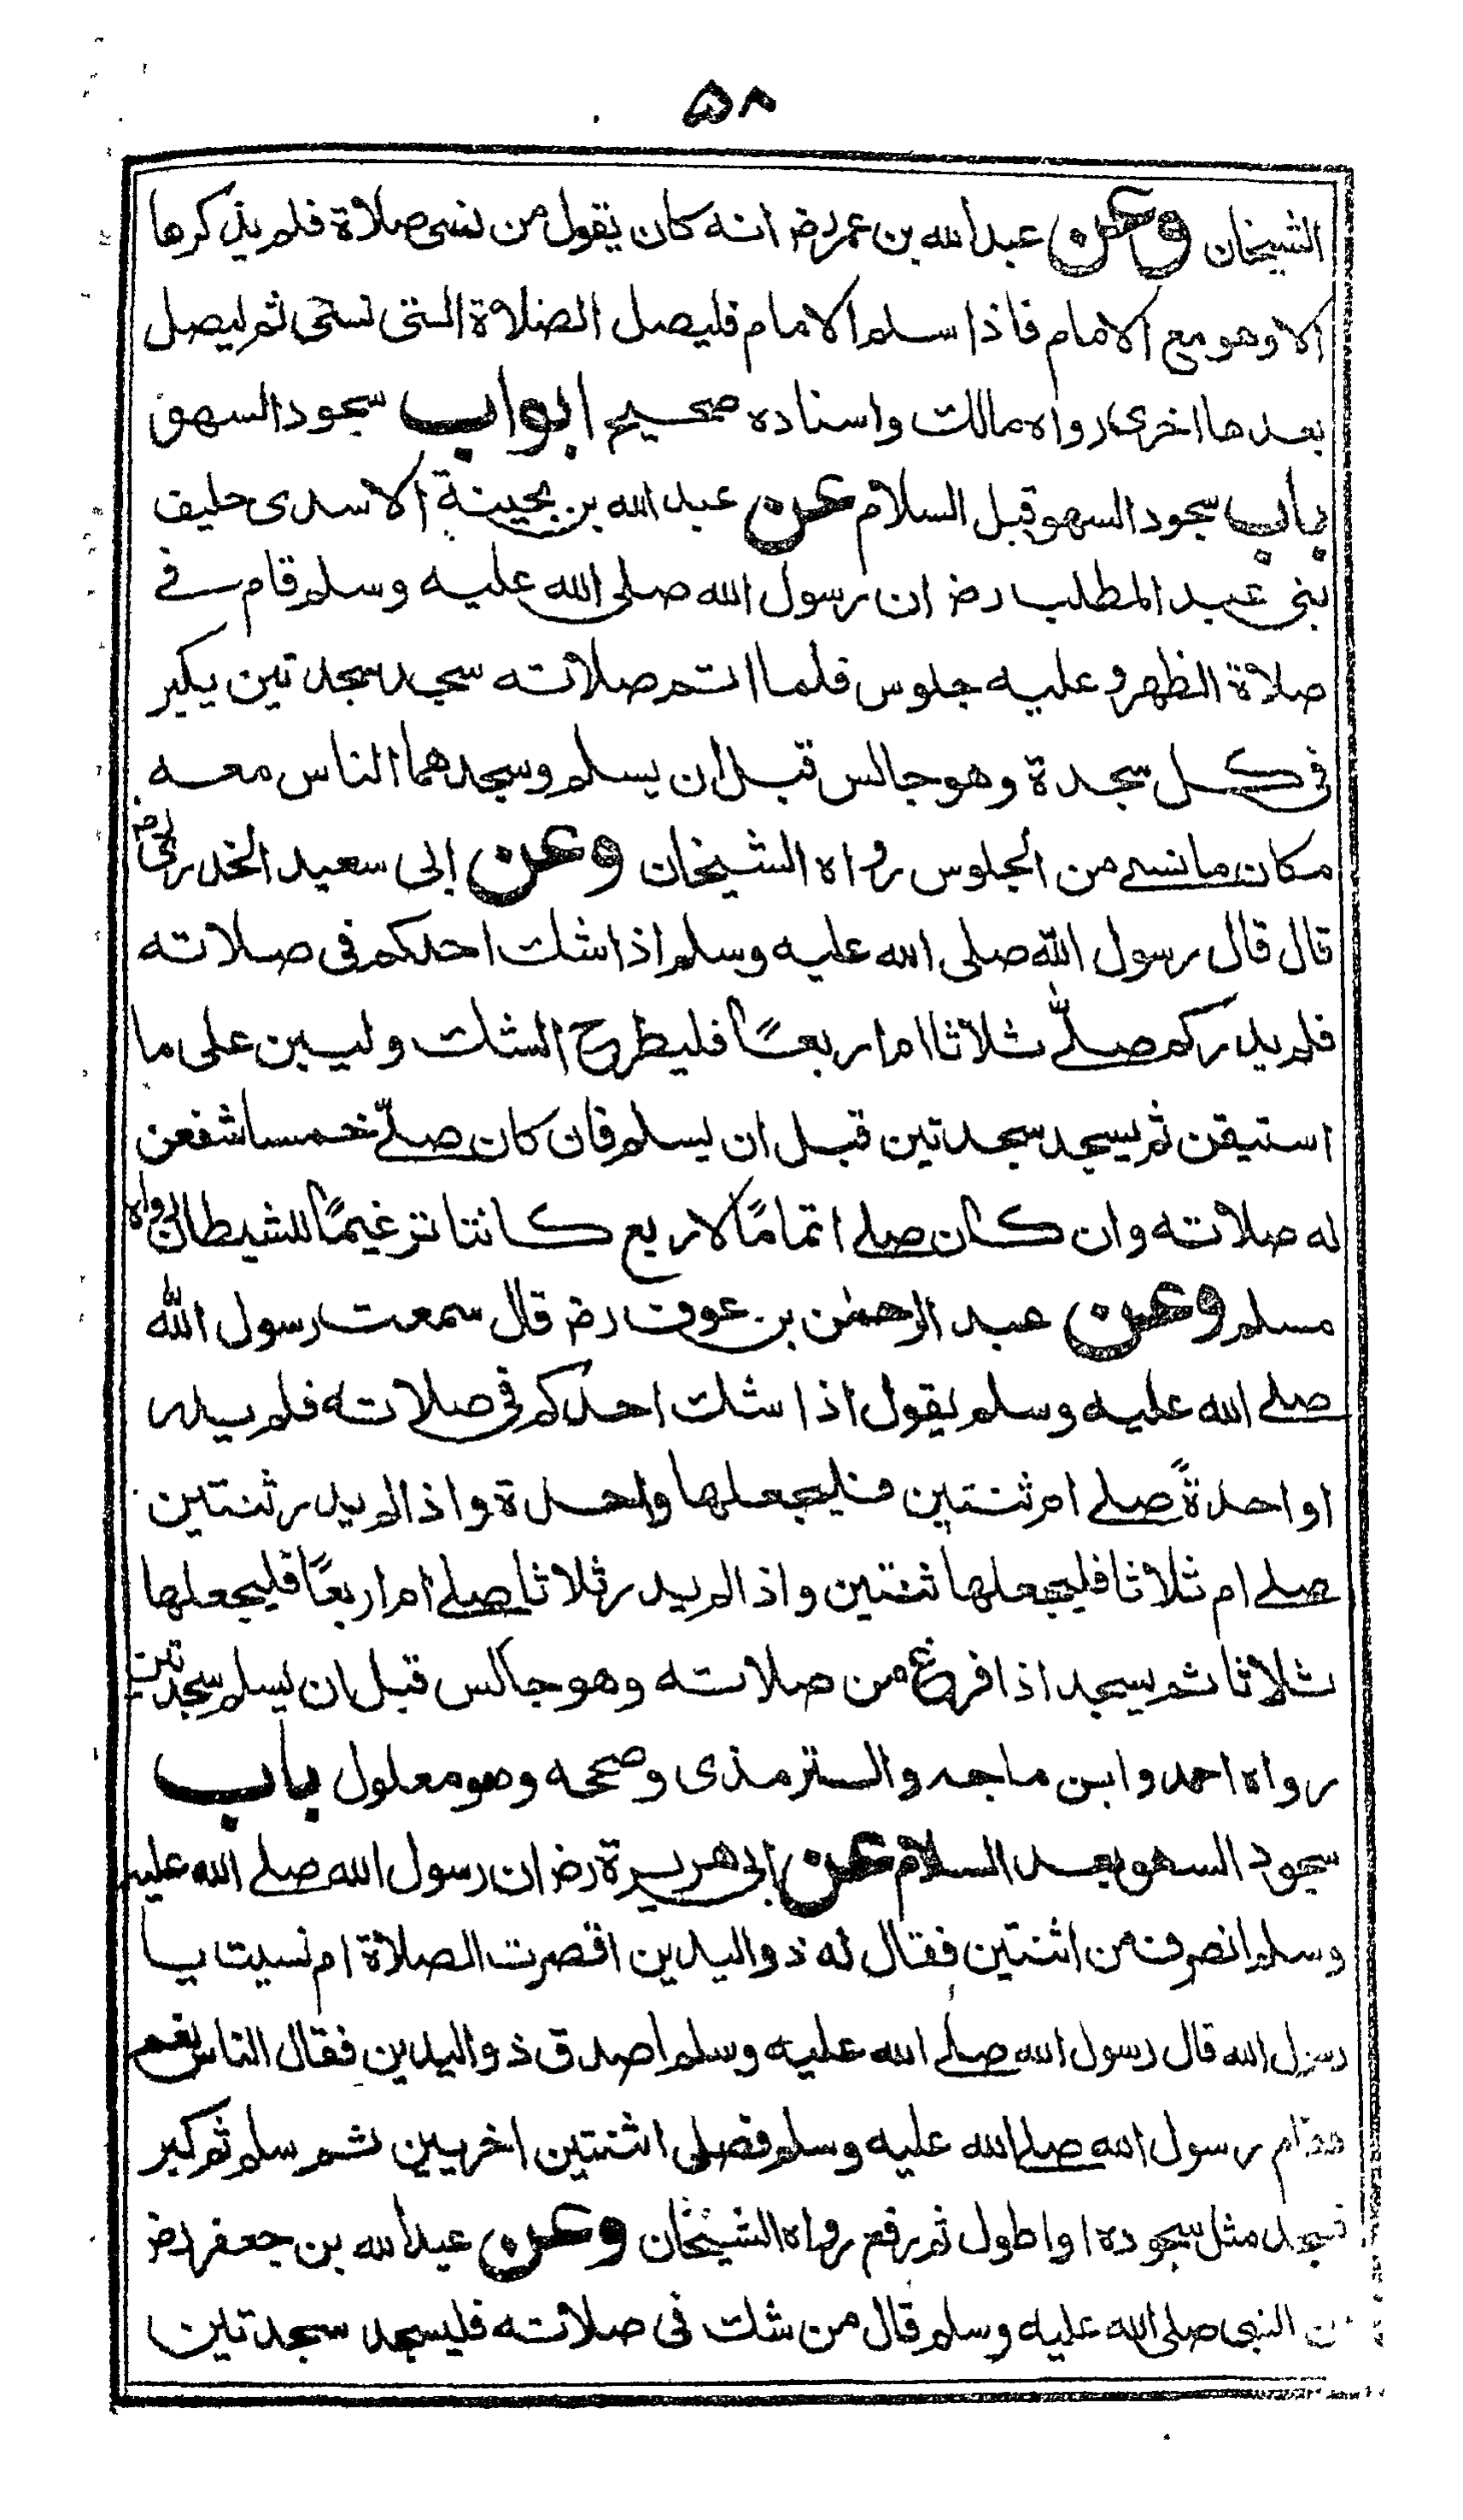 ۵۸
الشيخان وعن عبد الله بن عمر رض انه كان يقول من نسى صلاة فلم يذكرها
الا وهو مع الامام فاذا سلم الامام فليصل الصلاة التى نسى ثم ليصل
بعدها اخرى رواه مالك واسناده صحيح ابواب سجود السهو
باب سجود السهو قبل السلام عن عبد الله بن بحينة الاسدى حليف
بنى عبد المطلب رض ان رسول الله صلى الله عليه وسلم قام فى
صلاة الظهر وعليه جلوس فلما اتم صلاته سجد سجدتين يكبر
فى كل سجدة وهو جالس قبل ان يسلم وسجدهما الناس معه
مكان ما نسى من الجلوس رواه الشيخان وعن ابى سعيد الخدرى رض
قال قال رسول الله صلى الله عليه وسلم اذا شك احدكم فى صلاته
فلم يدر كم صلّى ثلاثا ام اربعًا فليطرح الشك وليبن على ما
استيقن ثم يسجد سجدتين قبل ان يسلم فان كان صلّى خمسا شفعن
له صلاته وان كان صلى اتمامًا لاربع كانتا ترغيمًا للشيطان رواه
مسلم وعن عبد الرحمٰن بن عوف رض قال سمعت رسول الله
صلى الله عليه وسلم يقول اذا شك احدكم فى صلاته فلم يدر
اواحدةً صلى ام ثنتين فليجعلها واحدة واذا لم يدر ثنتين
صلى ام ثلاثا فليجعلها ثنتين واذا لم يدر ثلاثا صلى ام اربعًا فليجعلها
ثلاثا ثم يسجد اذا فرغ من صلاته وهو جالس قبل ان يسلم سجدتين
رواه احمد وابن ماجه والترمذى وصححه وهو معلول باب
سجود السهو بعد السلام عن ابى هريرة رض ان رسول الله صلى الله عليه
وسلم انصرف من اثنتين فقال له ذو اليدين اقصرت الصلاة ام نسيت يا
رسول الله قال رسول الله صلى الله عليه وسلم اصدق ذو اليدين فقال الناس نعم
فقام رسول الله صلى الله عليه وسلم فصلى اثنتين اخريين ثم سلم ثم كبر
فسجد مثل سجوده او اطول ثم رفع رواه الشيخان وعن عبد الله بن جعفر رض
عن النبى صلى الله عليه وسلم قال من شك فى صلاته فليسجد سجدتين